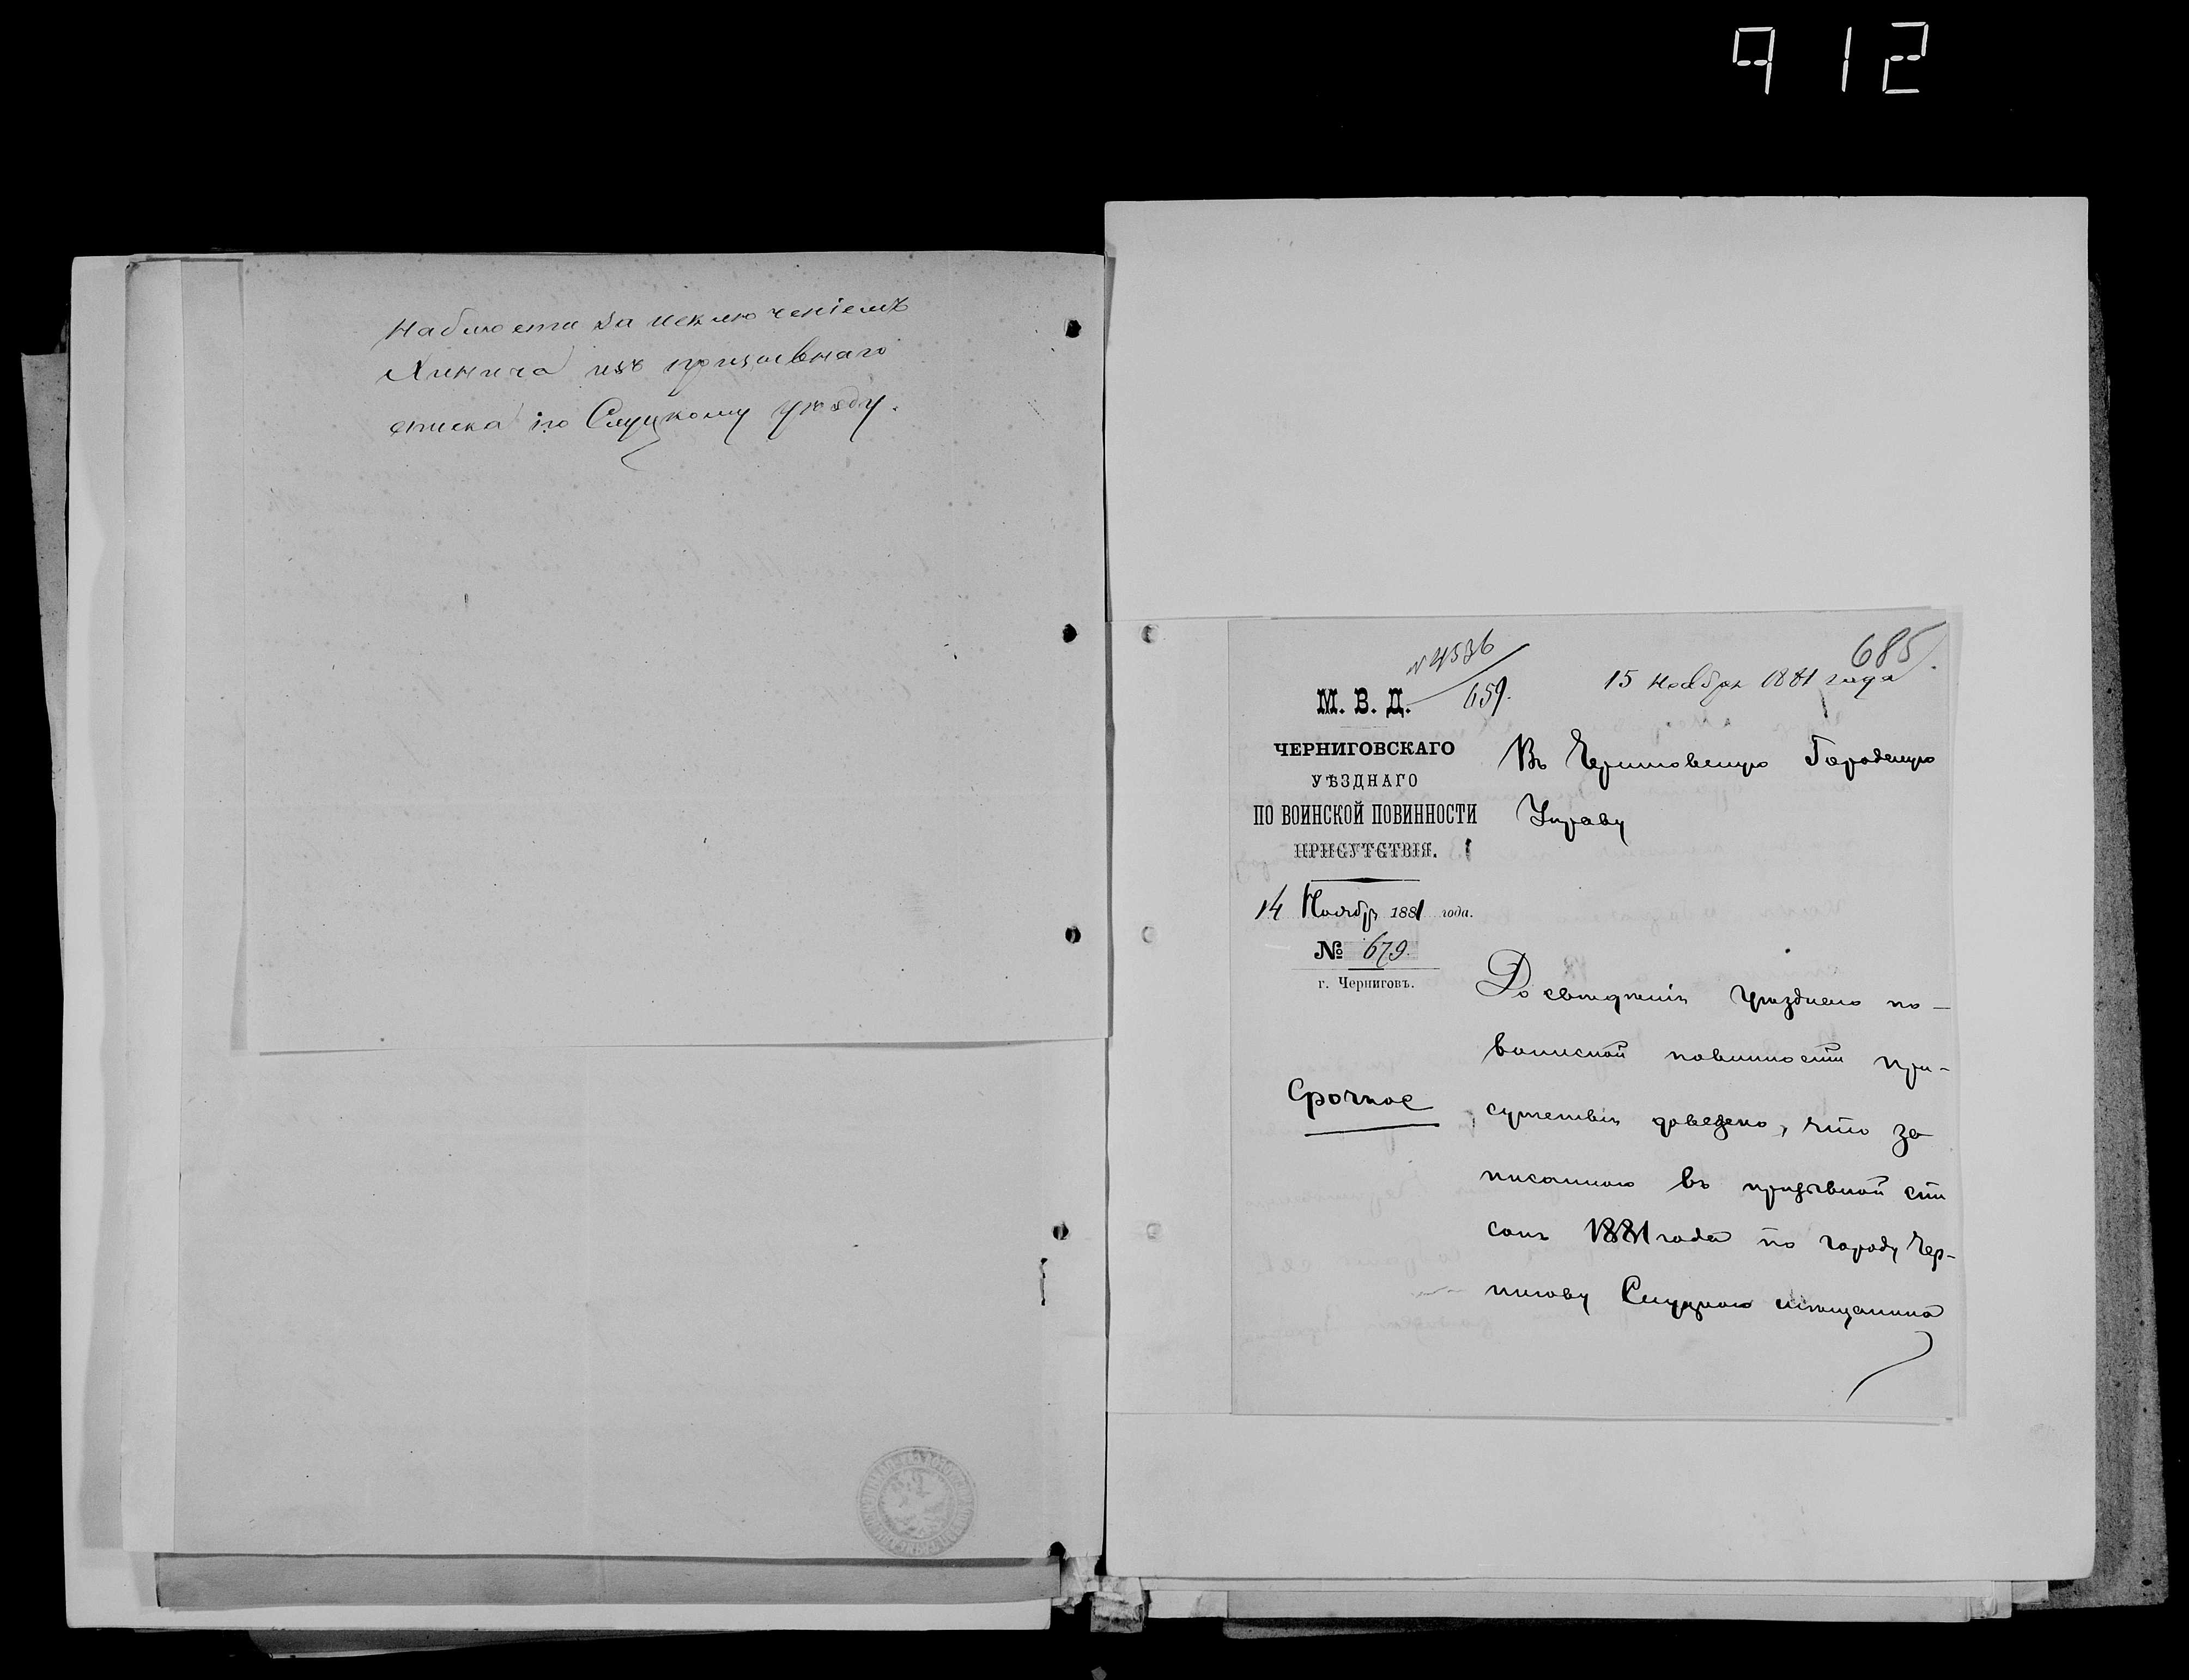 912
Наблюсти за исключеніемъ
Хинича изъ призывнаго
списка по Слуцкому уѣзду.
685
№ 4536
659.
15 Ноября 1881 года
М. В. Д.
ЧЕРНИГОВСКАГО
УѢЗДНАГО
ПО ВОИНСКОЙ ПОВИННОСТИ
ПРИСУТСТВІЯ.
14 Ноября 1881 года.
№ 679.
г. Черниговъ.
Срочное
Въ Черниговскую Городскую
Управу
До свѣдѣнія Уѣзднаго по
воинской повинности при-
сутствія доведено, что за
писанного въ призывной спи
сокъ 1881 года по городу Чер-
нигову Слуцкого мѣщанина